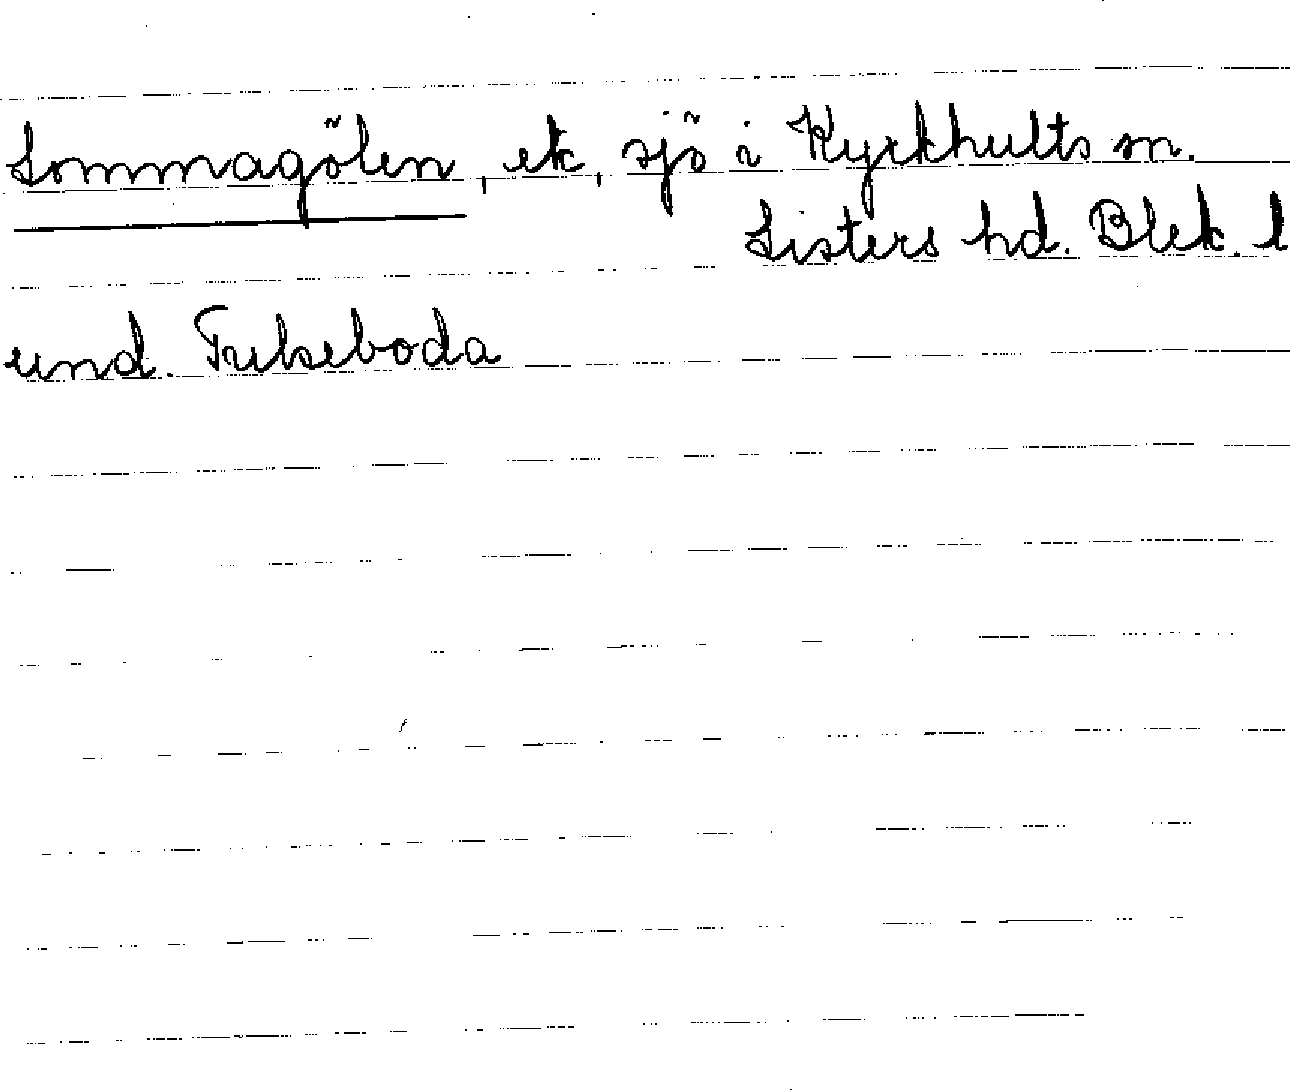 Lommagölen, ek, sjö i Kyrkhults sn.
Listers hd. Blek. l
und. Tulseboda